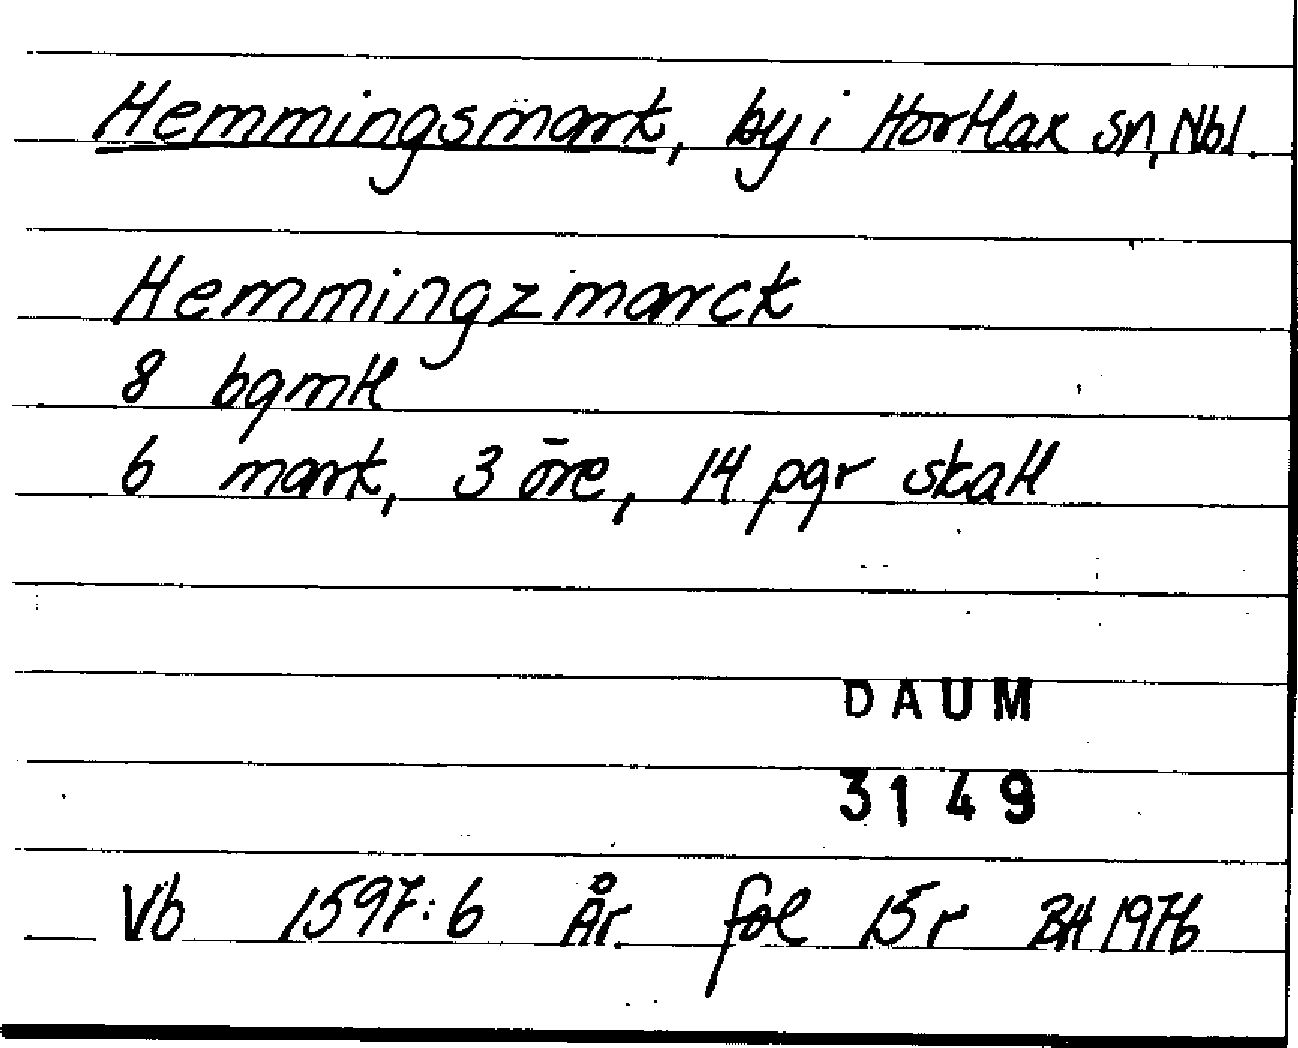 Hemmingsmark, by i Hortlax sn, Nbl.
Hemmingzmarck
8 bgmtl
6 mark, 3 öre, 14 pgr skatt
DAUM
3149
Vb 1597:6 År. fol 15r BH 1976